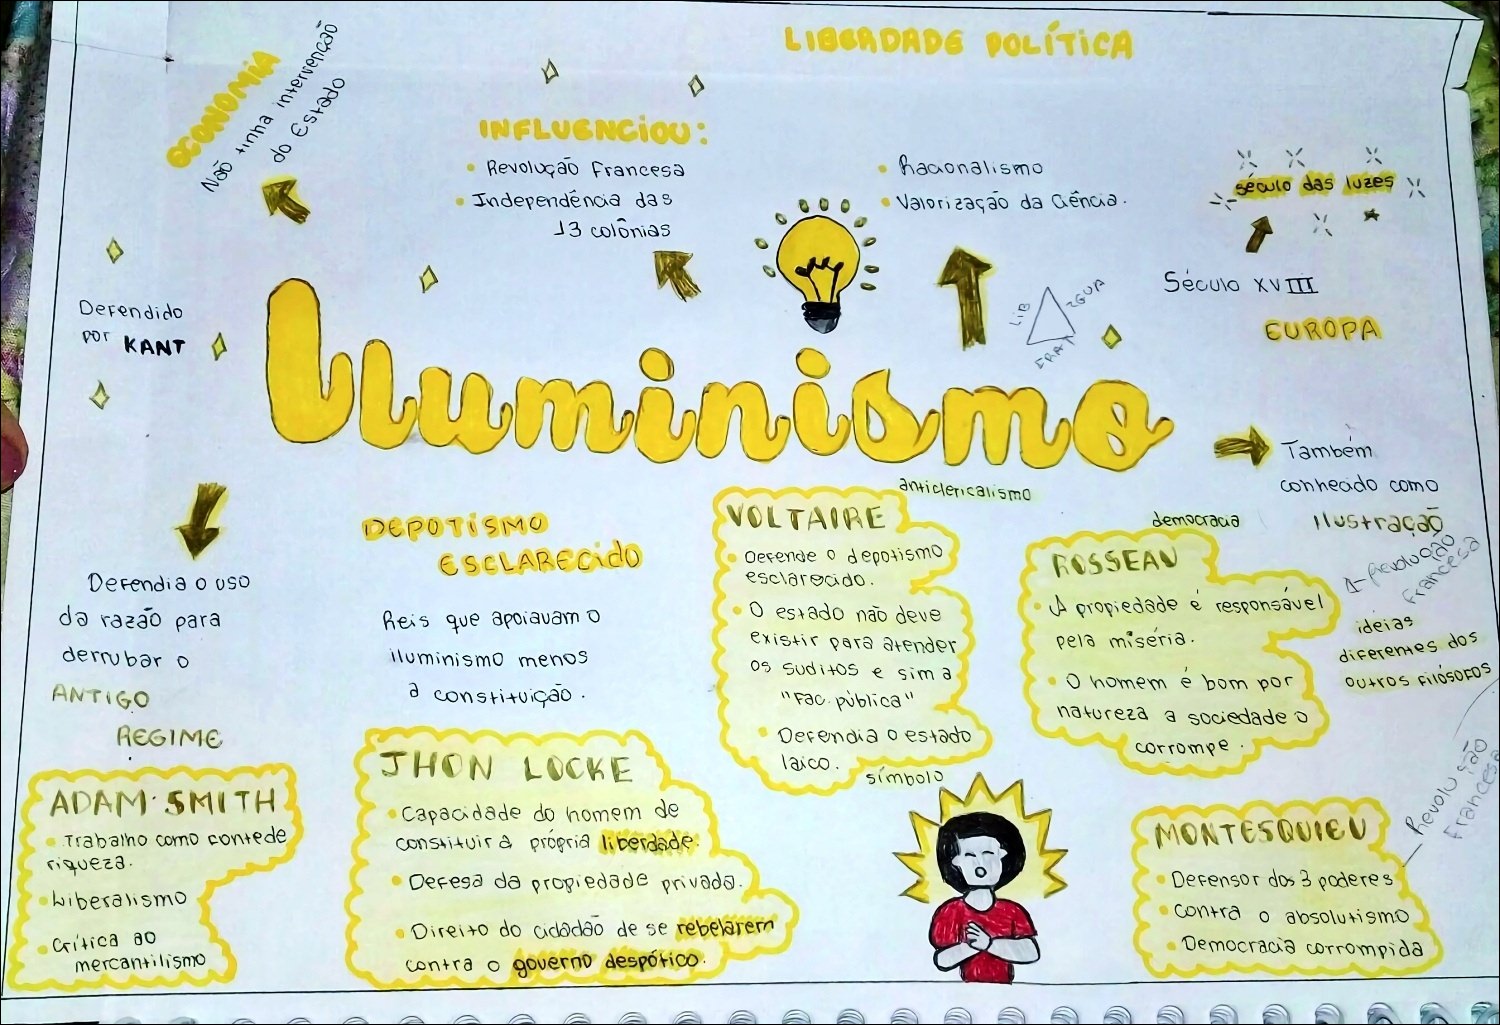 LIBERDADE POLÍTICA
ECONOMIA
Não tinha intervenção
do Estado
INFLUENCIOU:
• Revolução Francesa
• Independência das
13 colônias
• Racionalismo
• Valorização da Ciência.
século das luzes
Século XVIII
EUROPA
Defendido
por KANT
LIB
IGUA
FRAT
Iluminismo
Também
conhecido como
Ilustração
Defendia o uso
da razão para
derrubar o
ANTIGO
REGIME
DEPOTISMO
ESCLARECIDO
Reis que apoiavam o
iluminismo menos
a constituição.
anticlericalismo
VOLTAIRE
• Defende o depotismo
esclarecido.
• O estado não deve
existir para atender
os suditos e sim a
"Fac. pública"
• Defendia o estado
laico.
democracia
ROSSEAU
• A propiedade é responsável
pela miséria.
• O homem é bom por
natureza a sociedade o
corrompe.
Revolução
Francesa
ideias
diferentes dos
outros filósofos
ADAM SMITH
• Trabalho como fontede
riqueza.
• Liberalismo
• Crítica ao
mercantilismo
JHON LOCKE
• Capacidade do homem de
constituir a própria liberdade.
• Defesa da propiedade privada.
• Direito do cidadão de se rebelarem
contra o governo despótico.
símbolo
MONTESQUIEU
• Defensor dos 3 poderes
• Contra o absolutismo
• Democracia corrompida
Revolução
Francesa